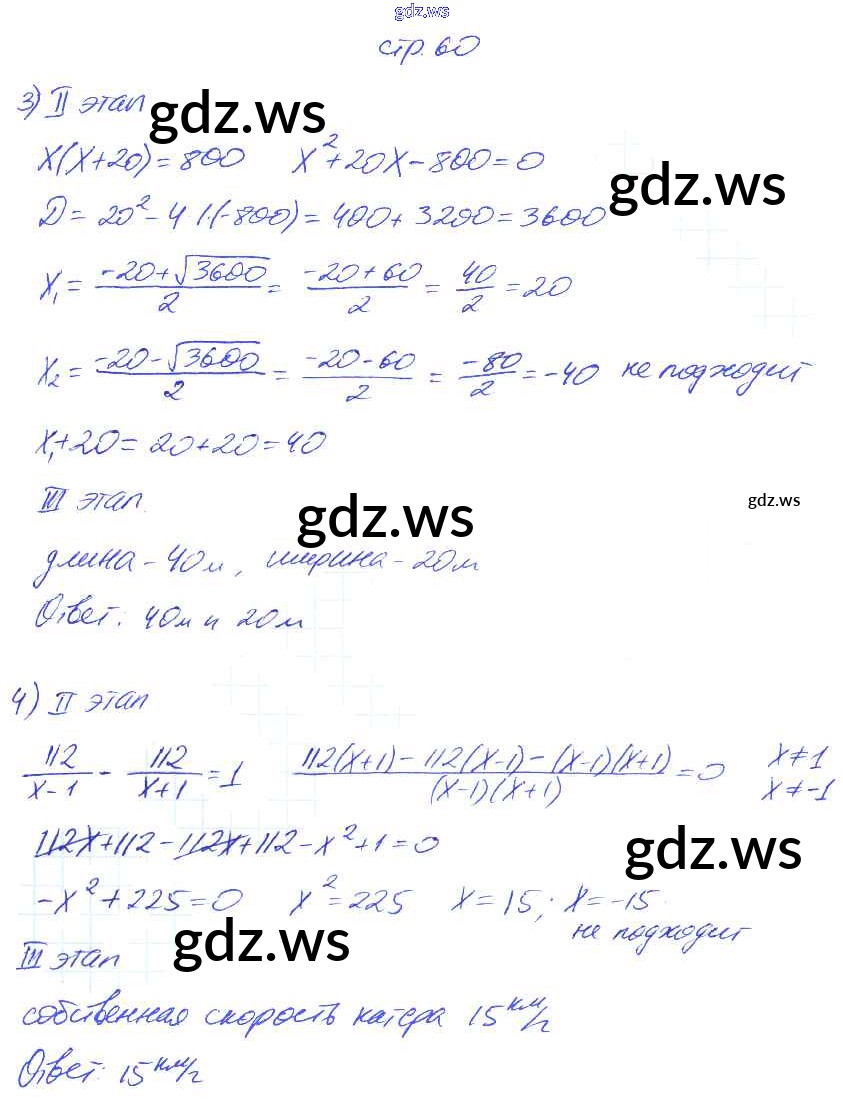 gdz.ws
стр. 60
3) II этап
gdz.ws
x(x+20)=800 x²+20x-800=0
gdz.ws
D= 20²-4·1·(-800)= 400+3200=3600
x₁= (-20+√3600)/2 = (-20+60)/2 = 40/2 =20
x₂= (-20-√3600)/2 = (-20-60)/2 = -80/2 =-40 не подходит
x₁+20= 20+20=40
III этап.
gdz.ws
gdz.ws
длина-40м, ширина-20м
Ответ: 40м и 20м
4) II этап
112/(x-1) - 112/(x+1) =1 (112(x+1)-112(x-1)-(x-1)(x+1))/((x-1)(x+1)) =0 x≠1
x≠-1
112x+112-112x+112-x²+1=0
gdz.ws
-x²+225=0 x²=225 x=15; x=-15.
не подходит
gdz.ws
III этап
собственная скорость катера 15 км/ч
Ответ: 15 км/ч